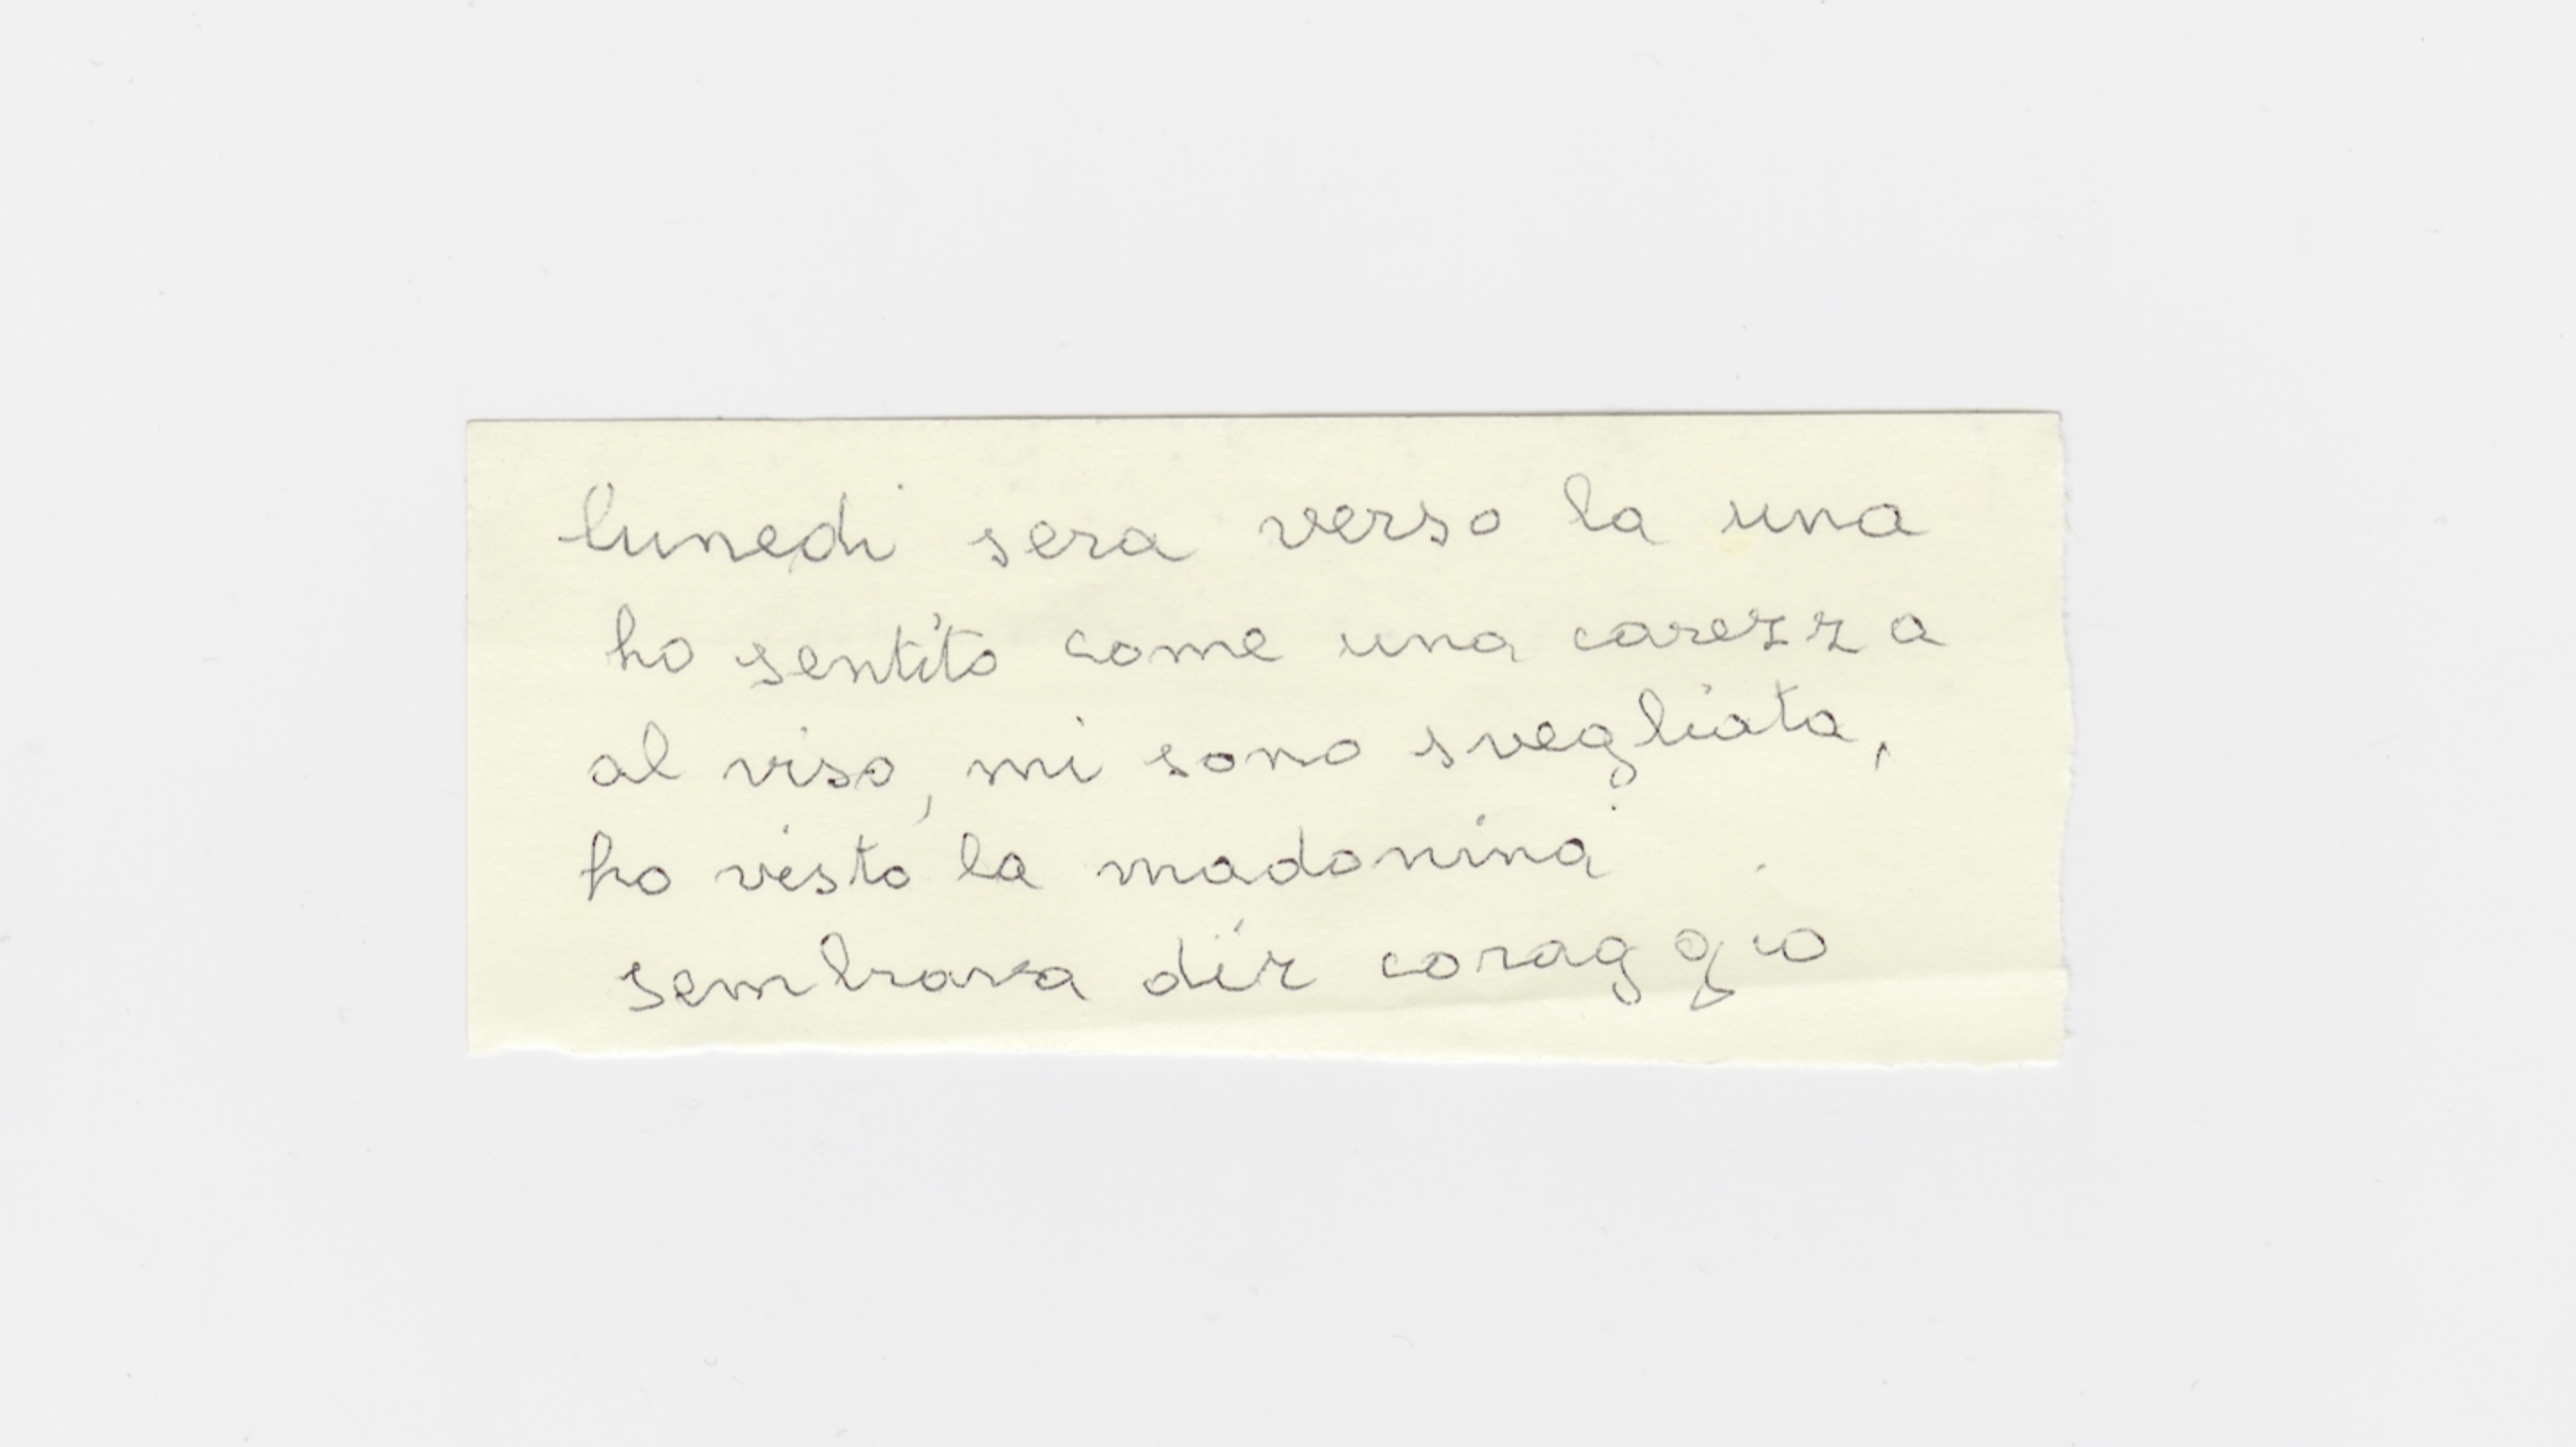 lunedi sera verso la una
ho sentito come una carezza
al viso, mi sono svegliata,
ho visto la madonina
sembrava dir coraggio